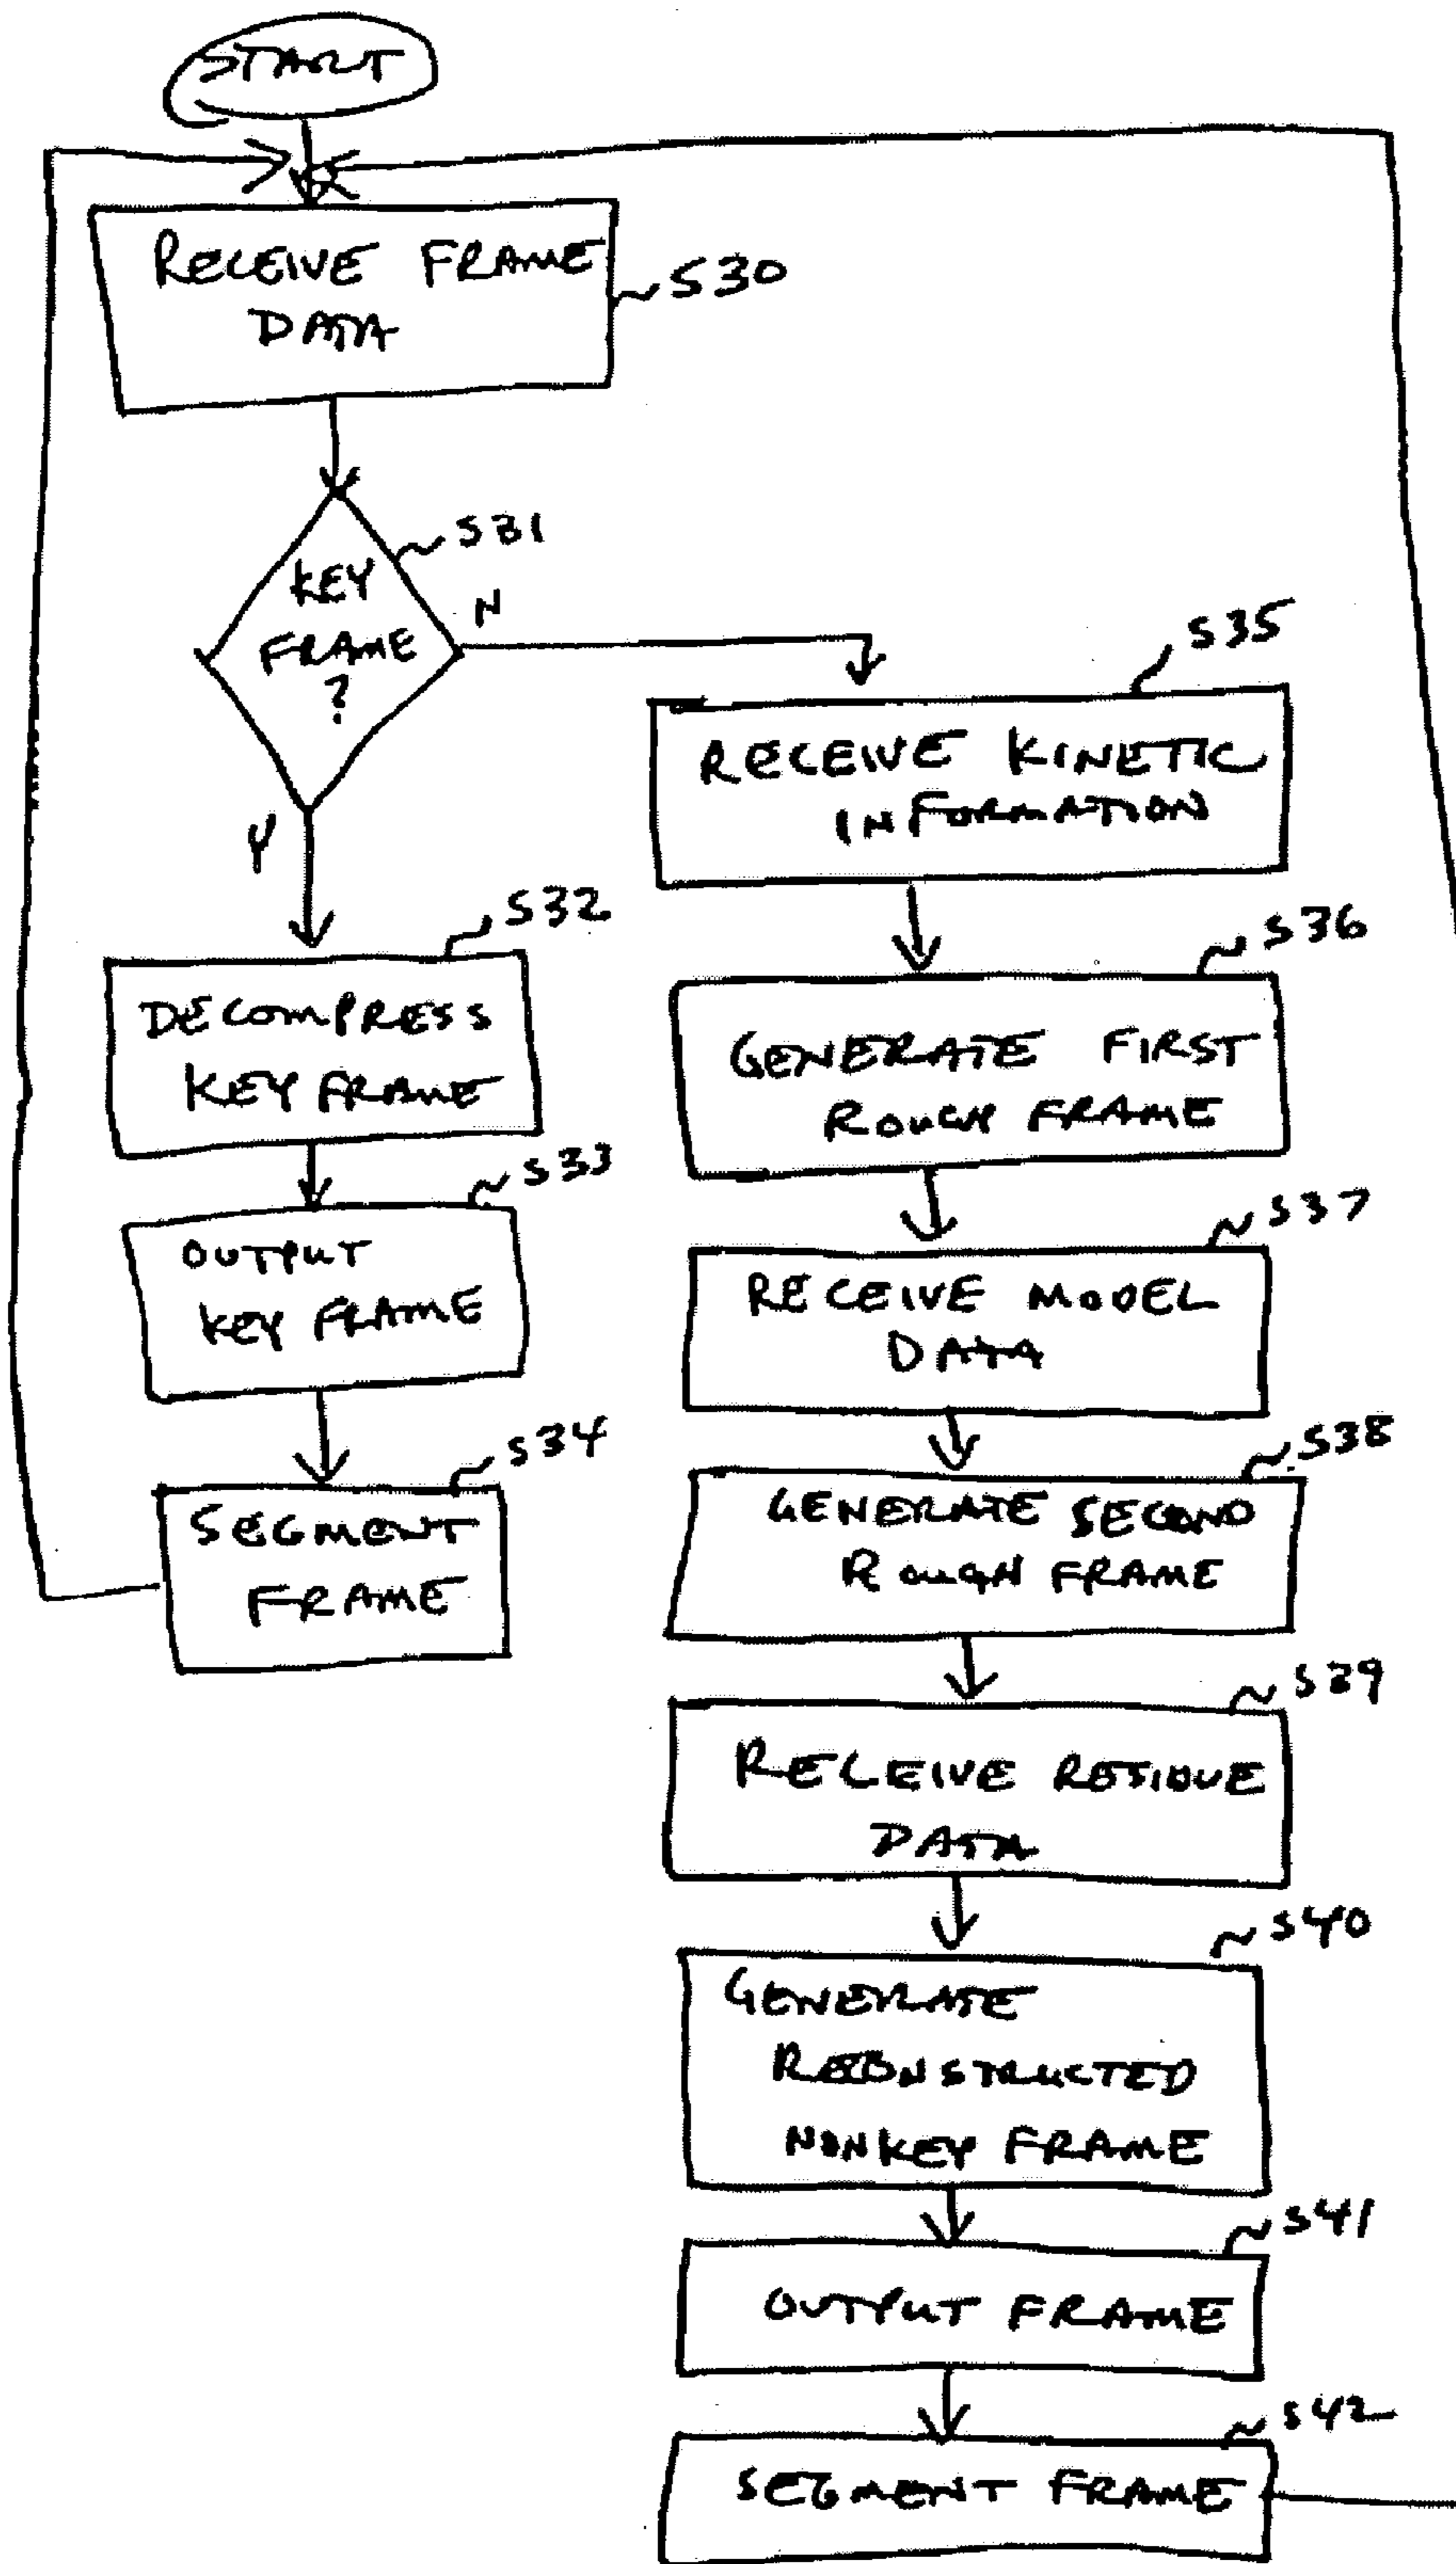 START
RECEIVE FRAME
DATA
S30
S31
KEY
FRAME
?
N
Y
S32
DECOMPRESS
KEY FRAME
S33
OUTPUT
KEY FRAME
S34
SEGMENT
FRAME
S35
RECEIVE KINETIC
INFORMATION
S36
GENERATE FIRST
ROUGH FRAME
S37
RECEIVE MODEL
DATA
S38
GENERATE SECOND
ROUGH FRAME
S39
RECEIVE RESIDUE
DATA
S40
GENERATE
RECONSTRUCTED
NONKEY FRAME
S41
OUTPUT FRAME
S42
SEGMENT FRAME